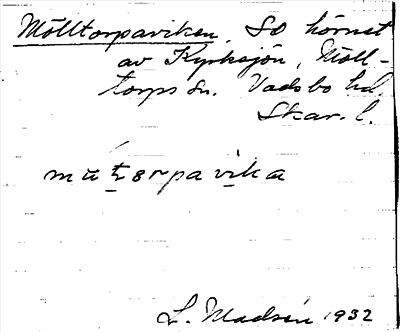 Mölltorpaviken. SO hörnet
av Kyrksjön, Möll-
torps sn. Vadsbo hd.
Skar. l.
L. Madsén 1932